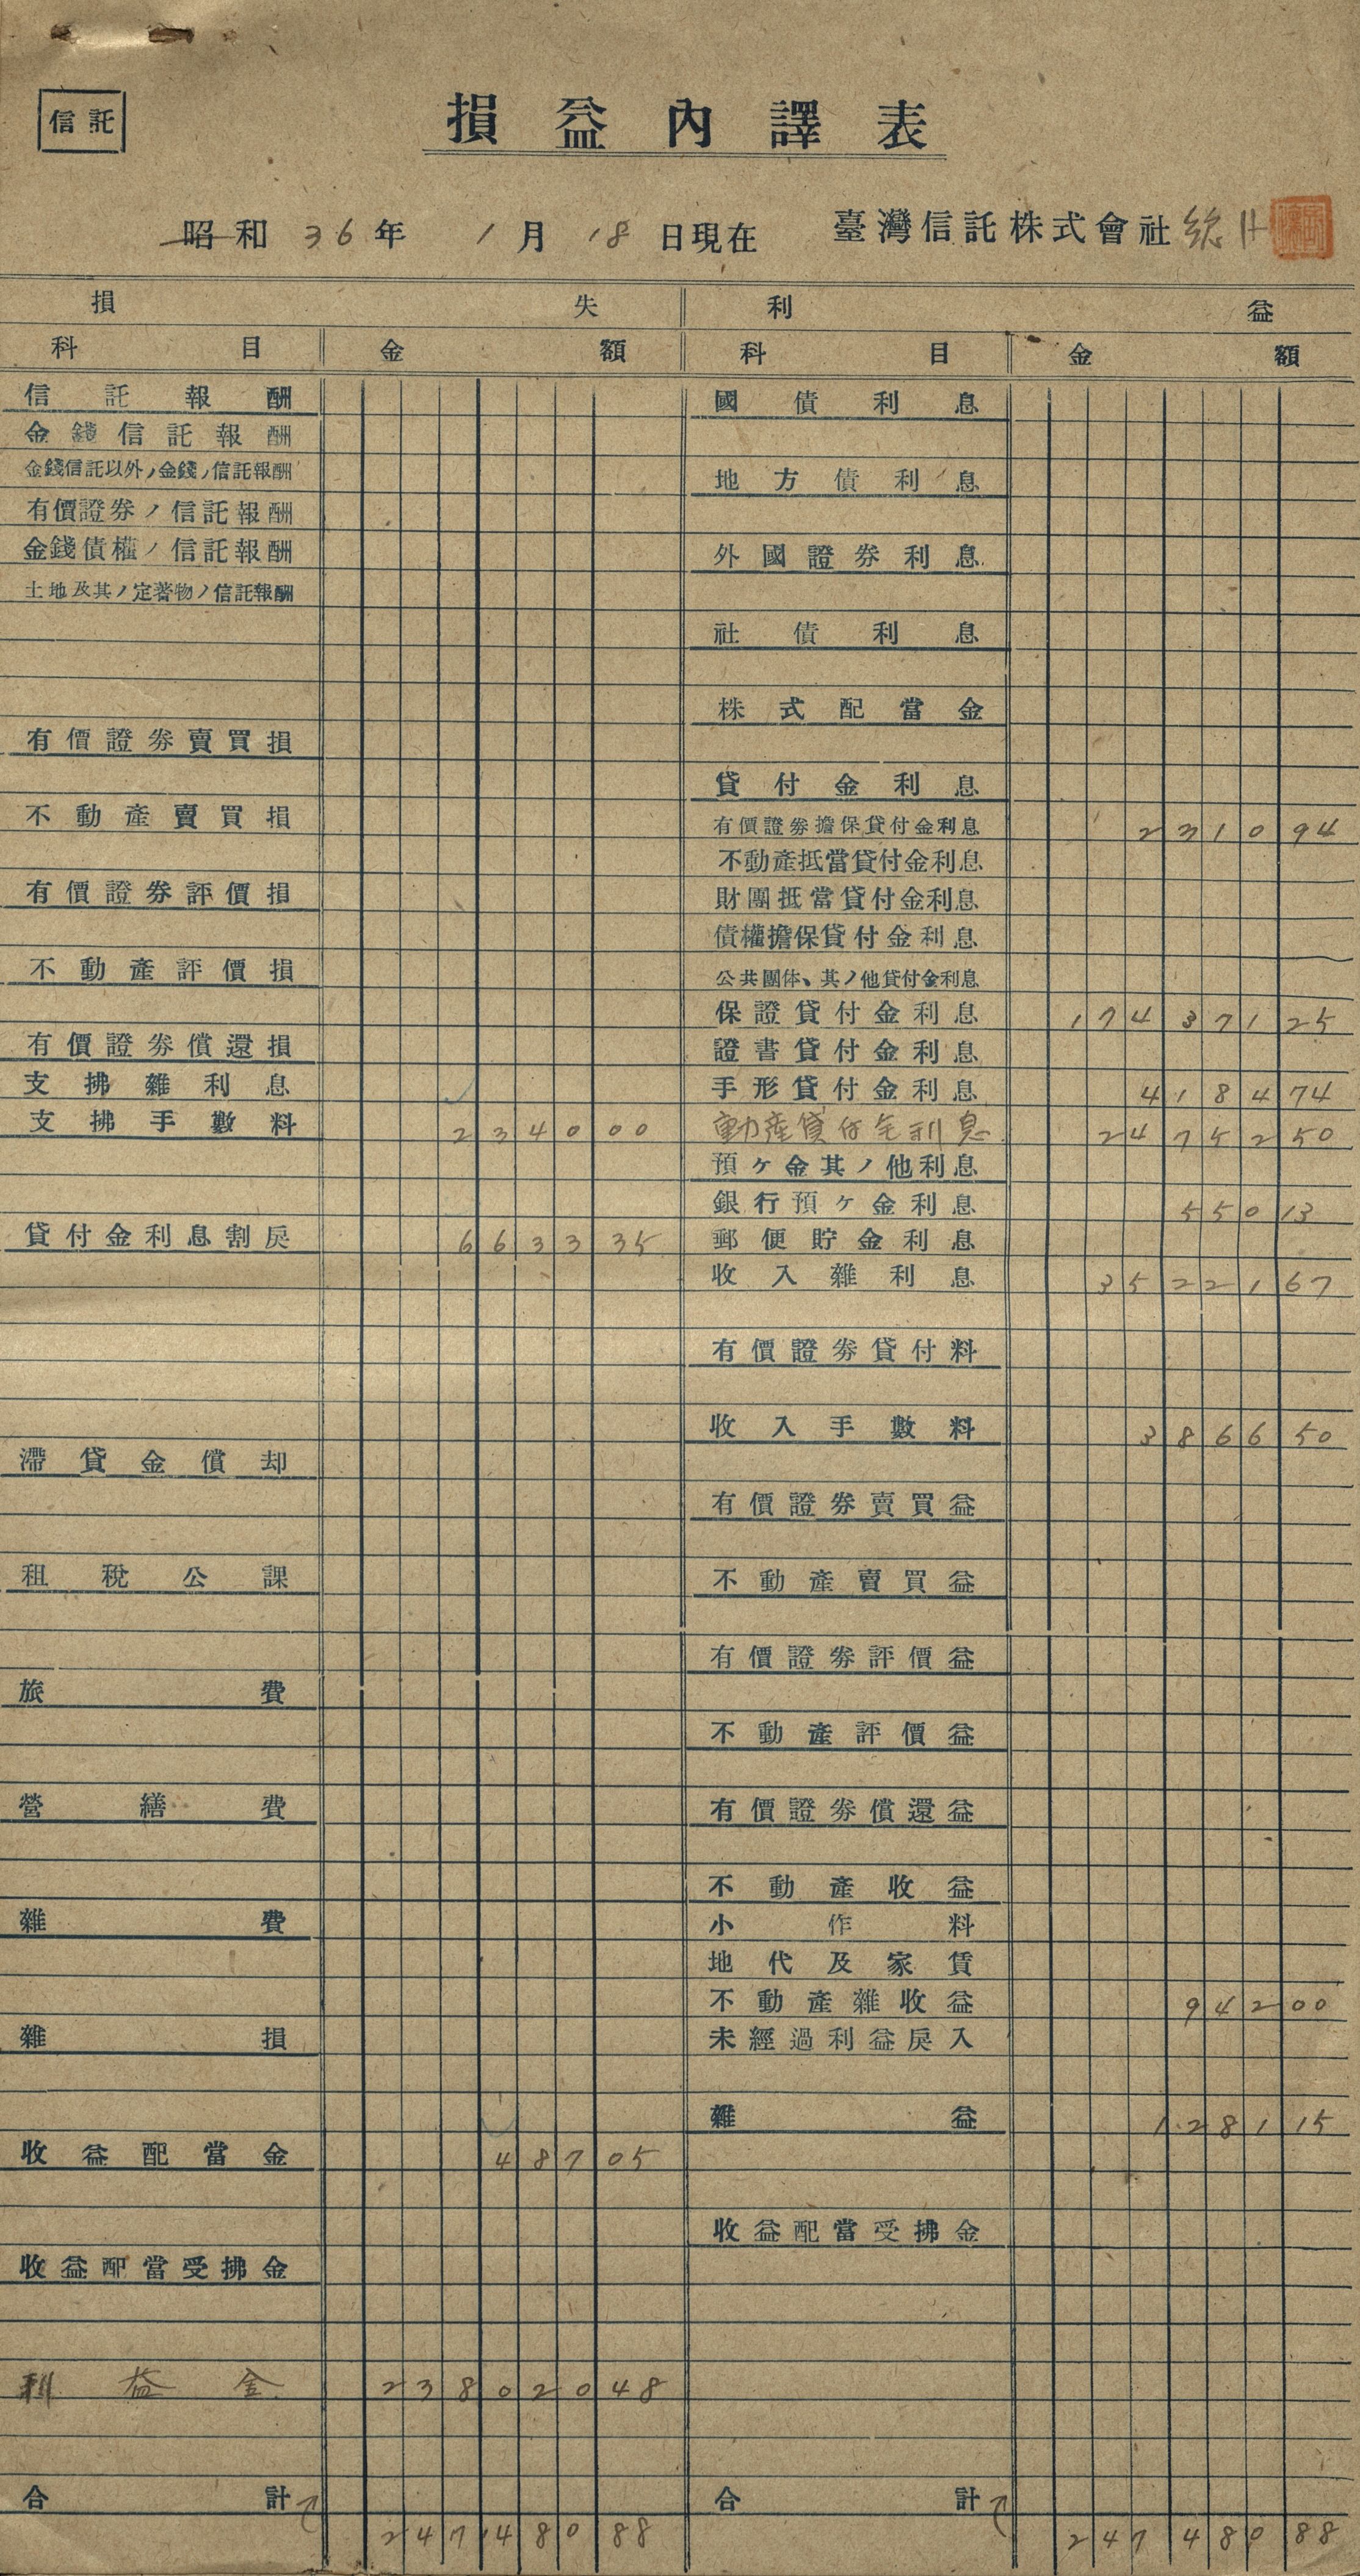 信託
損益內譯表
昭和36年1月18日現在 臺灣信託株式會社
損失
科目 金額
信託報酬
金錢信託報酬
金錢信託以外ノ金錢ノ信託報酬
有價證券ノ信託報酬
金錢債權ノ信託報酬
土地及其ノ定著物ノ信託報酬
有價證券賣買損
不動產賣買損
有價證券評價損
不動產評價損
有價證券償還損
支拂雜利息
支拂手數料 2340 00
貸付金利息割戾 6633 35
滯貸金償却
租稅公課
旅費
營繕費
雜費
雜損
收益配當金 487 05
收益配當受拂金
利益金 238020 48
合計 247480 88
利益
科目 金額
國債利息
地方債利息
外國證券利息
社債利息
株式配當金
貸付金利息
有價證券擔保貸付金利息 2310 94
不動產抵當貸付金利息
財團抵當貸付金利息
債權擔保貸付金利息
公共團体、其ノ他貸付金利息
保證貸付金利息 174371 25
證書貸付金利息
手形貸付金利息 4184 74
動產貸付金利息 24752 50
預ケ金其ノ他利息
銀行預ケ金利息 550 13
郵便貯金利息
收入雜利息 35221 67
有價證券貸付料
收入手數料 3866 50
有價證券賣買益
不動產賣買益
有價證券評價益
不動產評價益
有價證券償還益
不動產收益
小作料
地代及家賃
不動產雜收益 942 00
未經過利益戾入
雜益 1281 15
收益配當受拂金
合計 247480 88